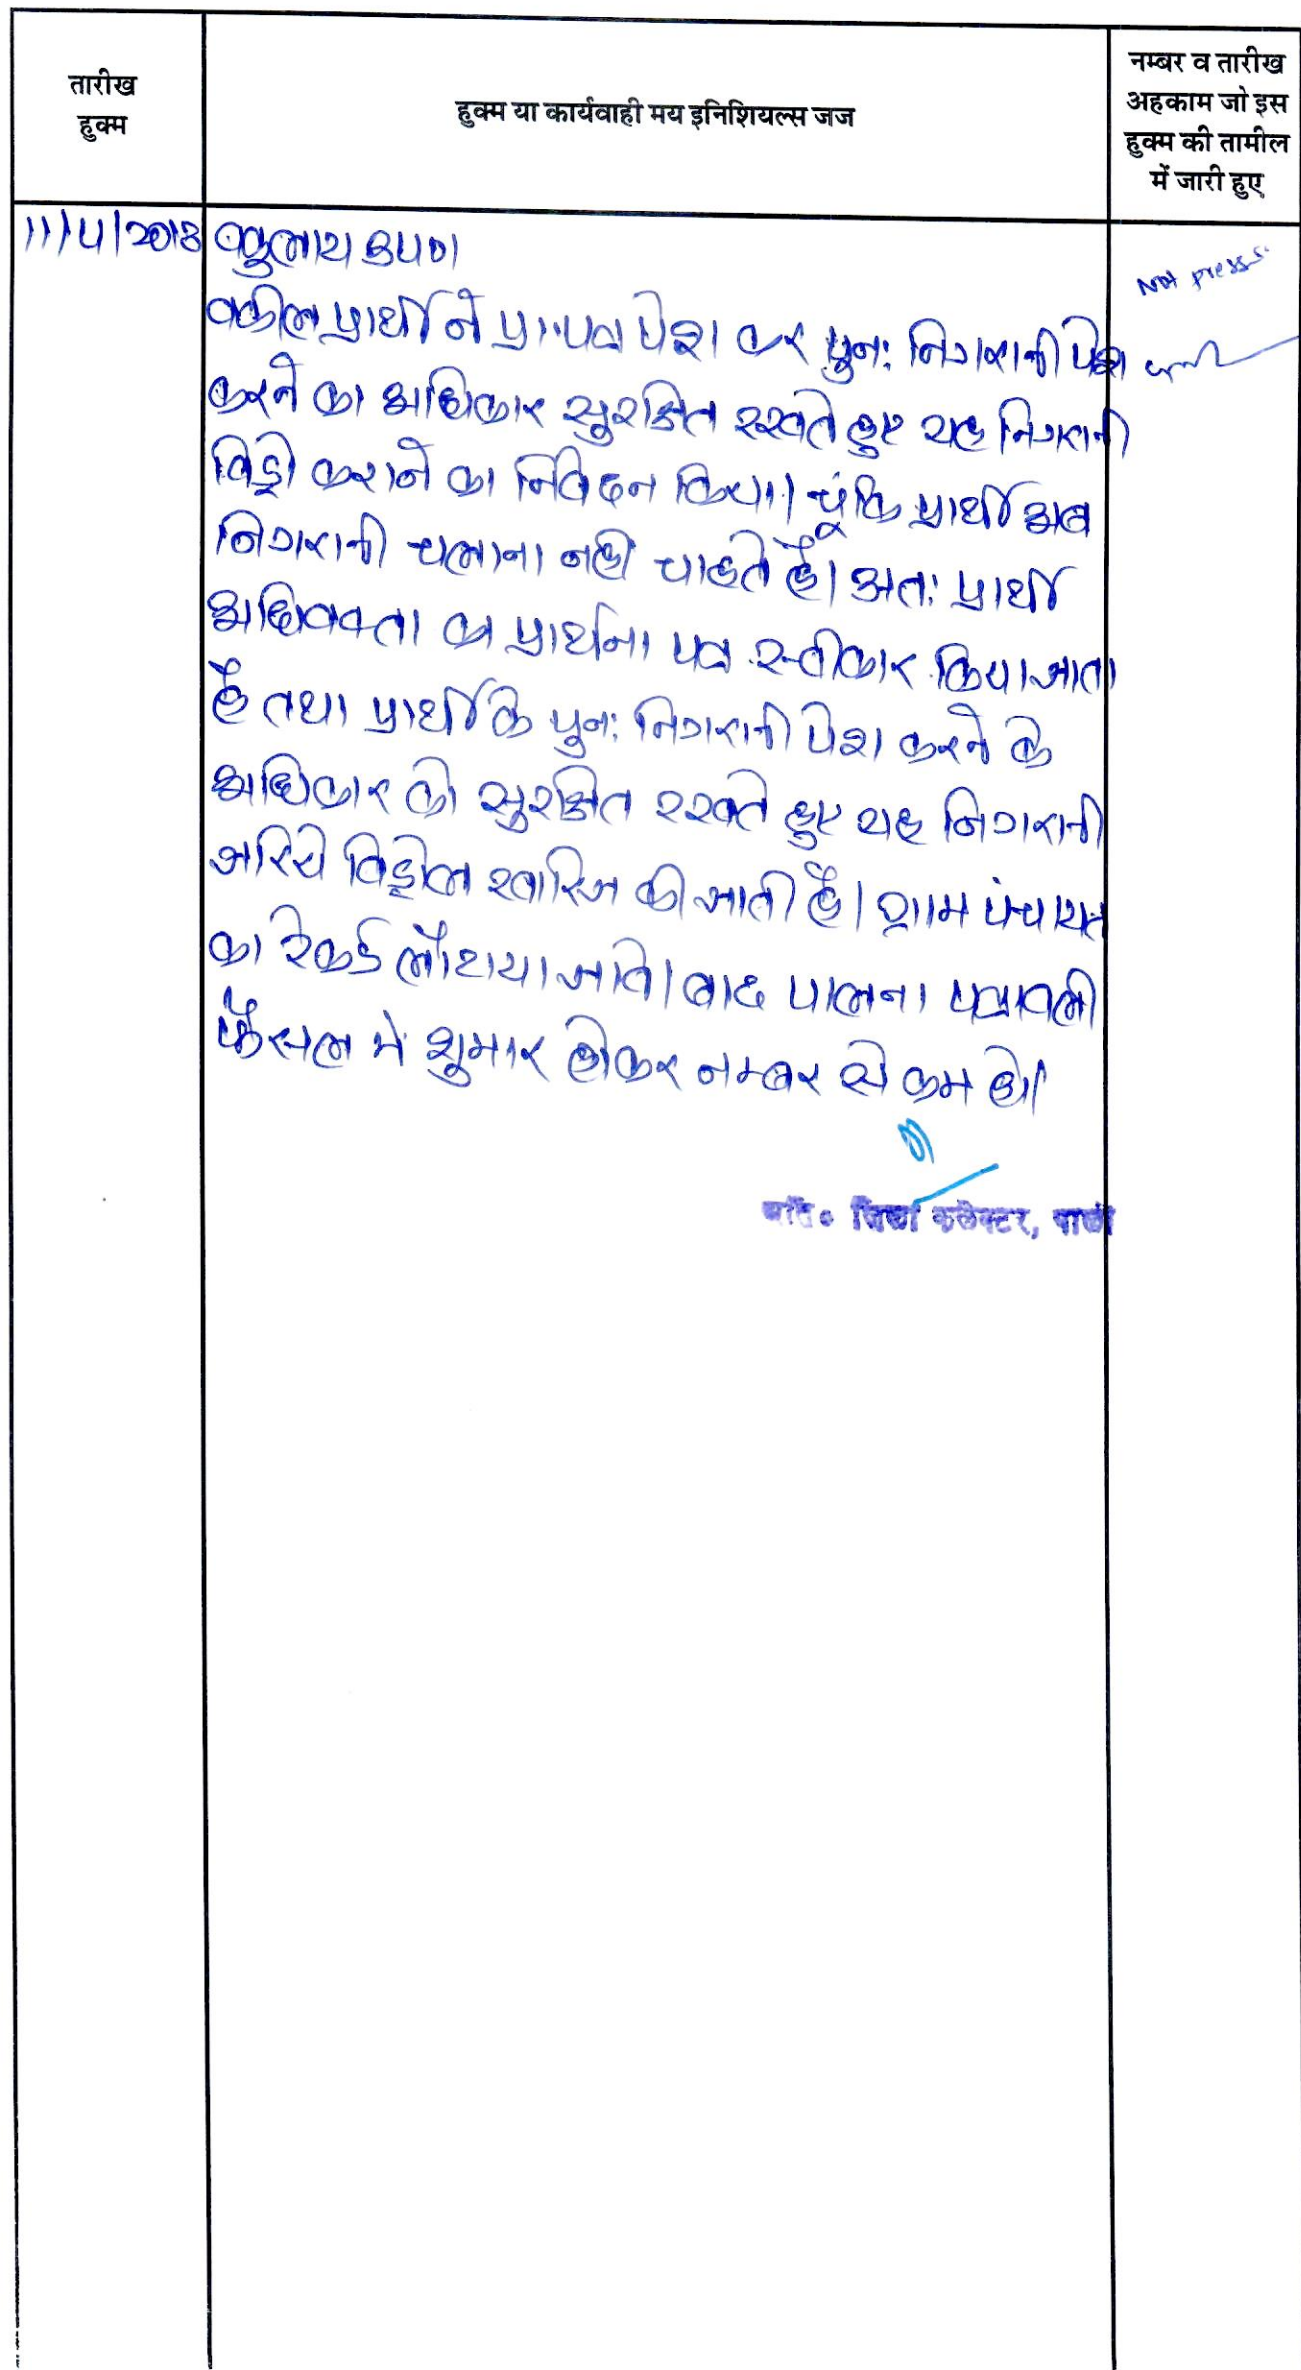 तारीख
हुक्म
हुक्म या कार्यवाही मय इनिशियल्स जज
नम्बर व तारीख
अहकाम जो इस
हुक्म की तामील
में जारी हुए
वकुलाय उप०
वकील प्रार्थी ने प्रा. पत्र पेश कर पुनः निगरानी पेश
करने का अधिकार सुरक्षित रखते हुए यह निगरानी
विड्रो कराने का निवेदन किया। चूंकि प्रार्थी अब
निगरानी चलाना नही चाहते है। अतः प्रार्थी
अधिवक्ता का प्रार्थना पत्र स्वीकार किया जाता
है तथा प्रार्थी के पुनः निगरानी पेश करने के
अधिकार को सुरक्षित रखते हुए यह निगरानी
जरिये विड्रोल खारिज की जाती है। ग्राम पंचायत
का रेकर्ड लौटाया जावे। बाद पालना पत्रावली
फैसल मे शुमार होकर नम्बर से कम हो।
Not press
अति० जिला कलेक्टर, पाली